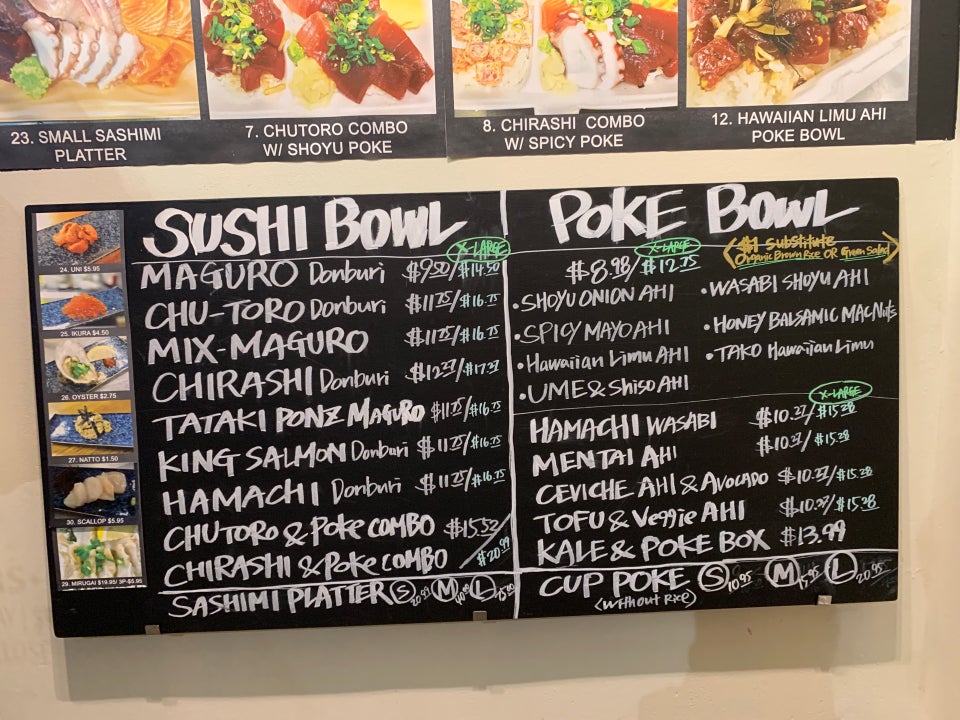 23. SMALL SASHIMI
PLATTER
7. CHUTORO COMBO
W/ SHOYU POKE
8. CHIRASHI COMBO
W/ SPICY POKE
12. HAWAIIAN LIMU AHI
POKE BOWL
24. UNI $5.95
25. IKURA $4.50
26. OYSTER $2.75
27. NATTO $1.50
30. SCALLOP $5.95
29. MIRUGAI $19.95/ 3P-$5.95
SUSHI BOWL
X-LARGE
MAGURO Donburi $9.50/$14.50
CHU-TORO Donburi $11.75/$16.75
MIX-MAGURO $11.75/$16.75
CHIRASHI Donburi
TATAKI PONZ MAGURO $11.75/$16.75
KING SALMON Donburi $11.75/$16.75
HAMACHI Donburi $11.75/$16.75
CHUTORO & Poke COMBO $15.52/
CHIRASHI & Poke COMBO $20.99
SASHIMI PLATTER S M L
POKE BOWL
X-LARGE
$8.98/$12.75
$1 Substitute
Organic Brown Rice OR Green Salad
•SHOYU ONION AHI
•SPICY MAYO AHI
•Hawaiian Limu AHI
•UME & Shiso AHI
•WASABI SHOYU AHI
•HONEY BALSAMIC MAC Nuts
•TAKO Hawaiian Limu
X-LARGE
HAMACHI WASABI $10.27/$15.28
MENTAI AHI $10.27/$15.28
CEVICHE AHI & Avocado $10.27/$15.28
TOFU & Veggie AHI $10.27/$15.28
KALE & POKE BOX $13.99
CUP POKE S 10.95 M 15.95 L 20.95
(without Rice)